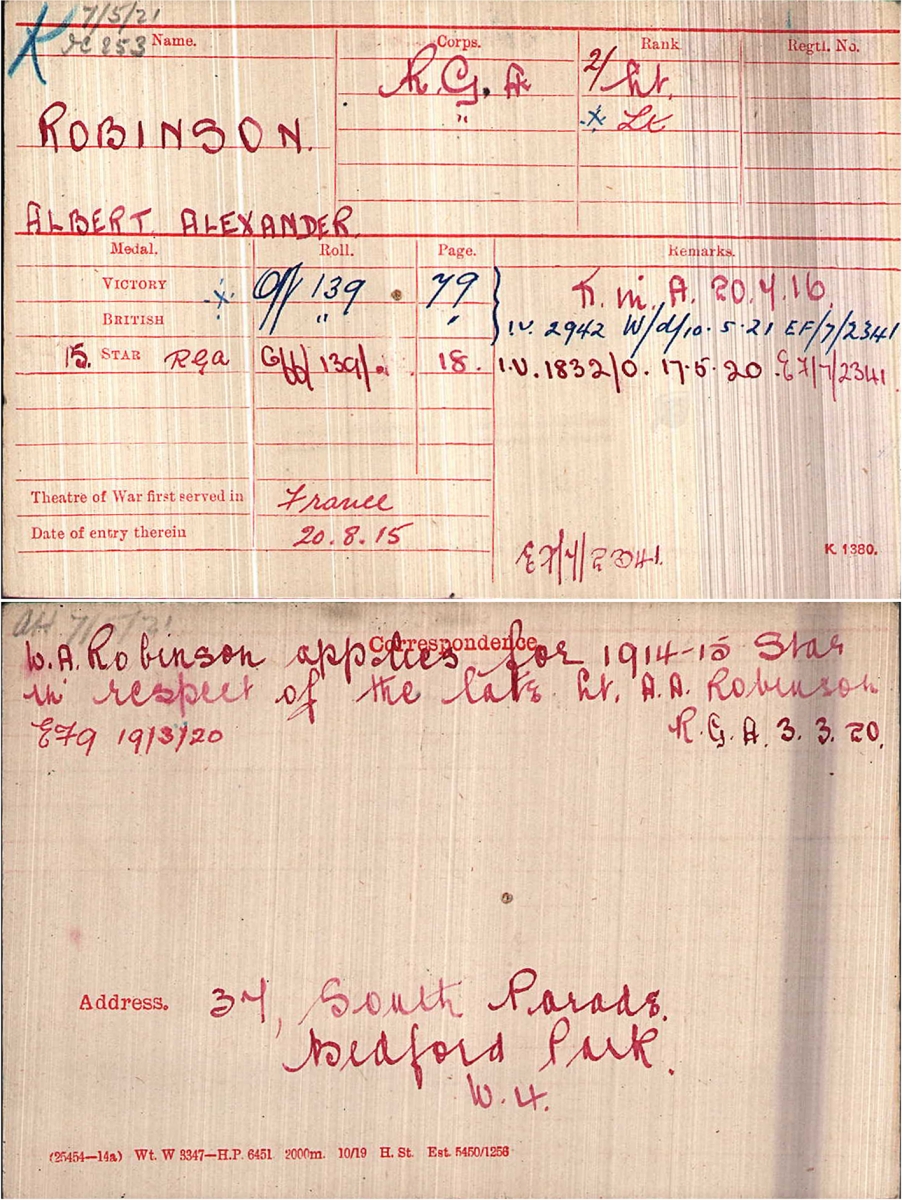 7/5/21
Name. Corps. Rank. Regtl. No.
R.G.A. 2/Lt.
" * Lt
ROBINSON.
ALBERT ALEXANDER
Medal. Roll. Page. Remarks.
VICTORY * Off 139 79 K. in A. 20.4.16.
BRITISH " " I.V. 2942 W/d/10.5.21 EF/7/2341
15. STAR RGA Off/139/. 18. I.V. 1832/0. 17.5.20 EF/7/2341
Theatre of War first served in France
Date of entry therein 20.8.15
EF/7/2341.
K. 1380.
7/5/21
Correspondence.
W.A. Robinson applies for 1914-15 Star
in respect of the late Lt. A.A. Robinson
EF9 19/3/20 R.G.A. 3.3.20.
Address. 37, South Parade.
Bedford Park.
W.4.
(25454—14a) Wt. W 3347—H.P. 6451 2000m. 10/19 H. St. Est. 5450/1256